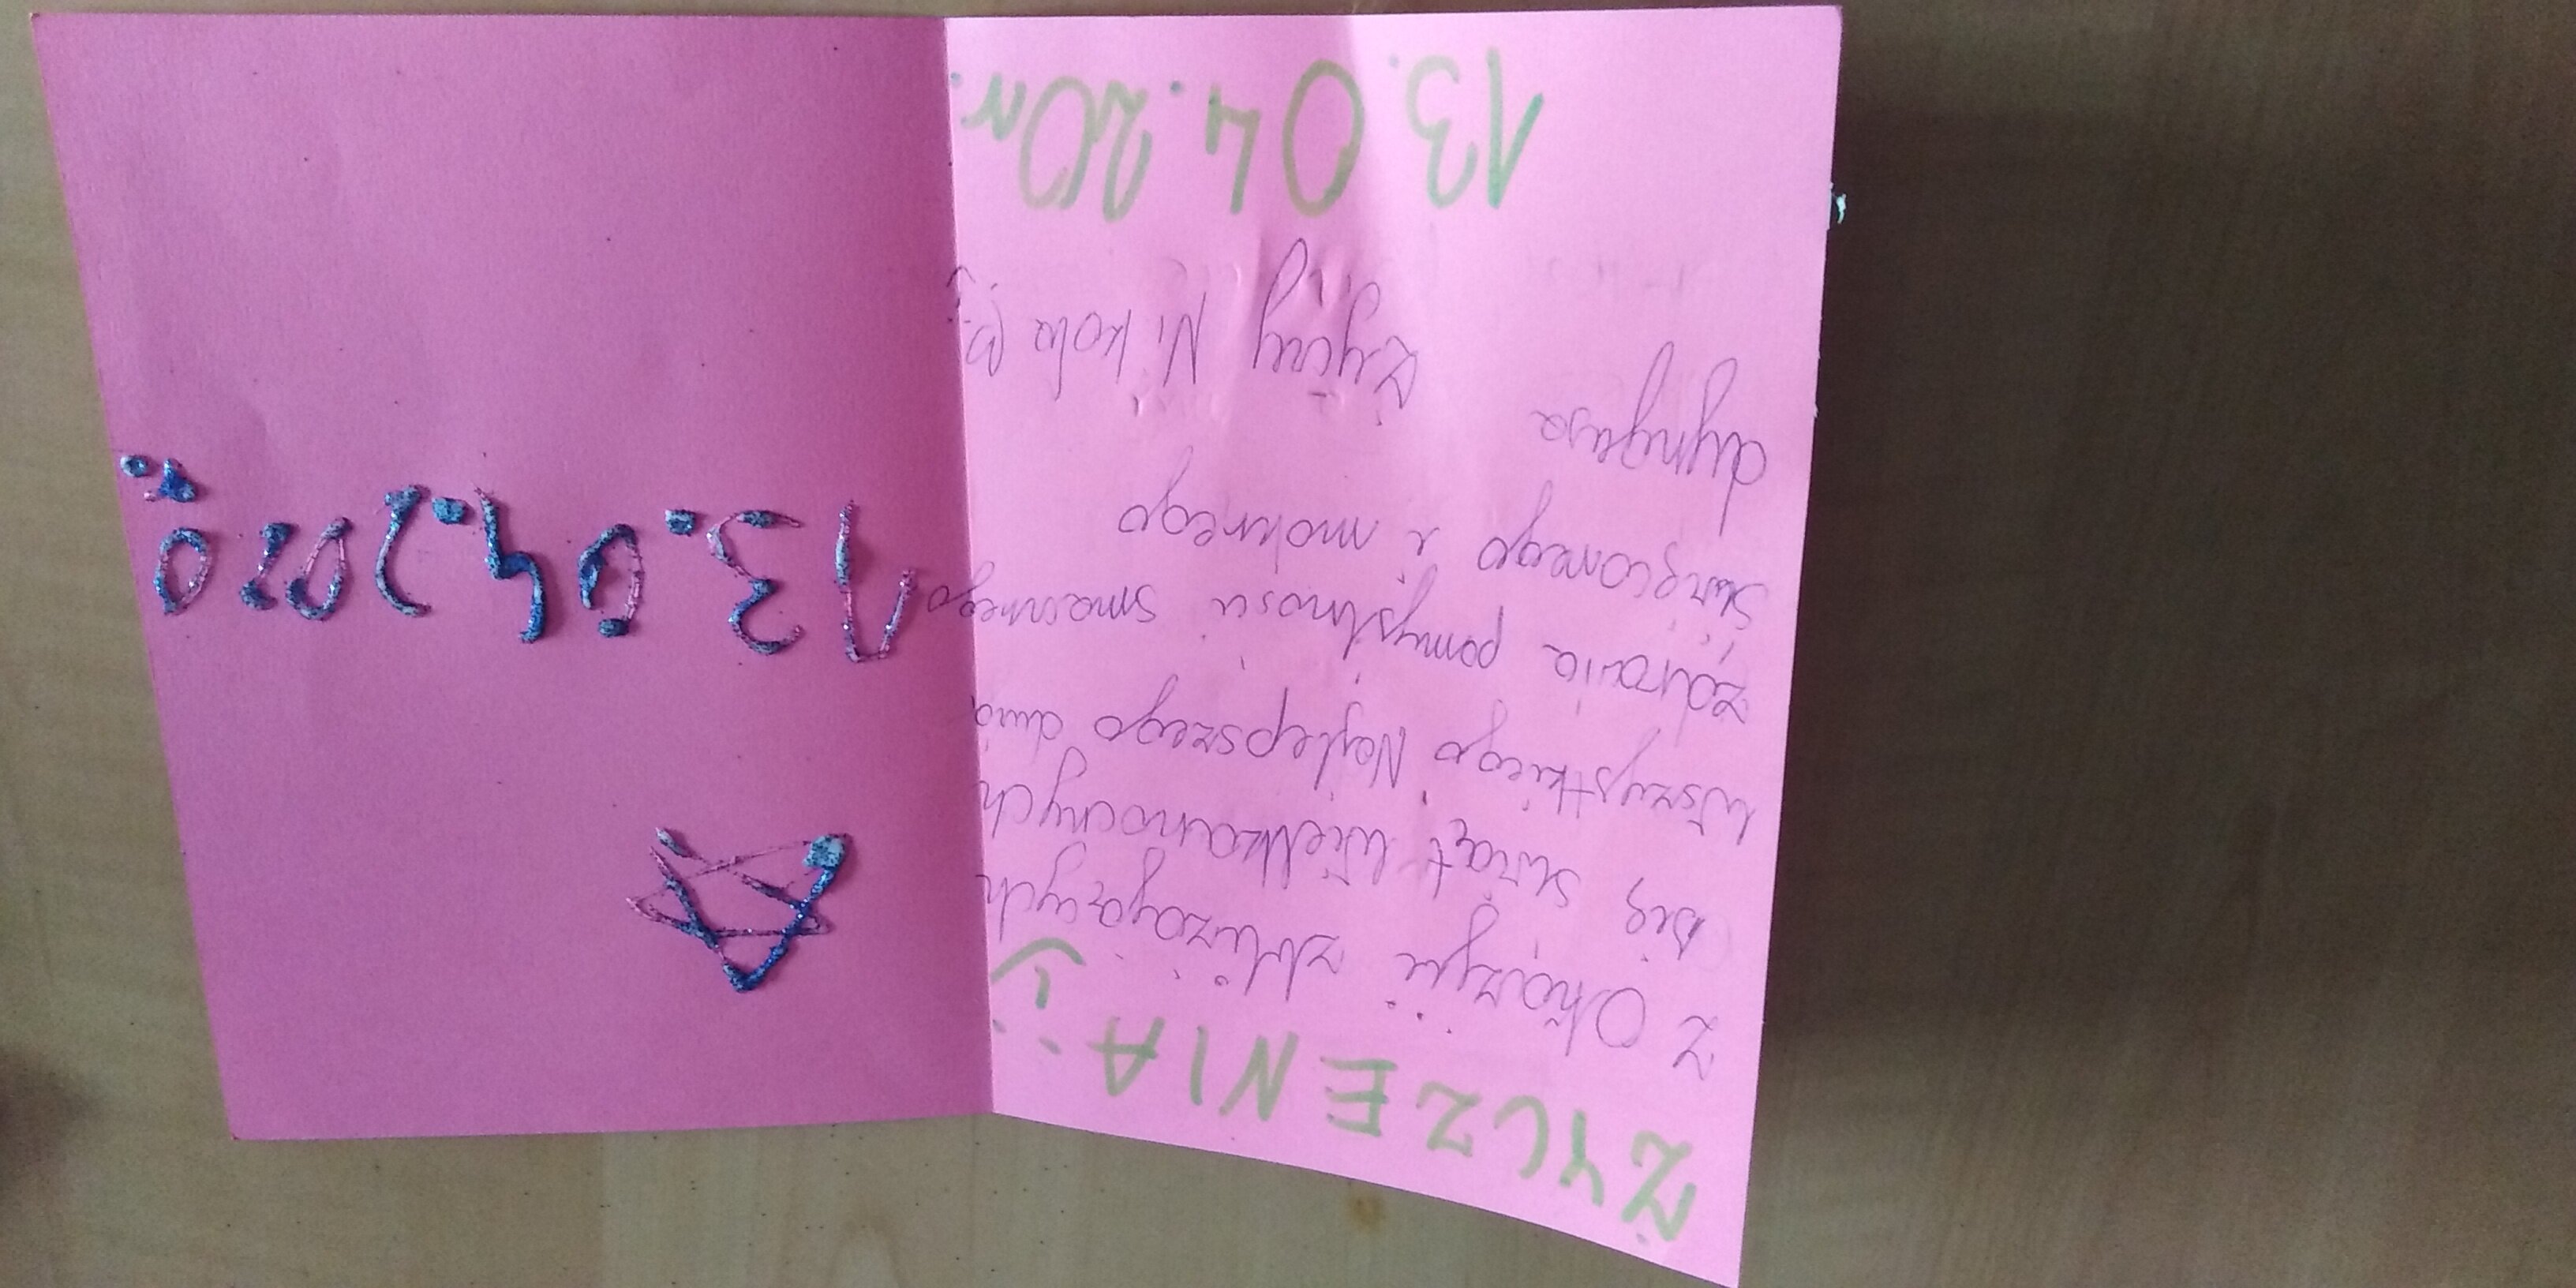 ŻYCZENIA :)
Z Okazji zbliżających
się świąt Wielkanocnych
Wszystkiego Najlepszego dużo
zdrowia pomyślności smacznego
święconego i mokrego
dyngusa
życzy Nikola P.
13.04.20r.
13.04.2020r.